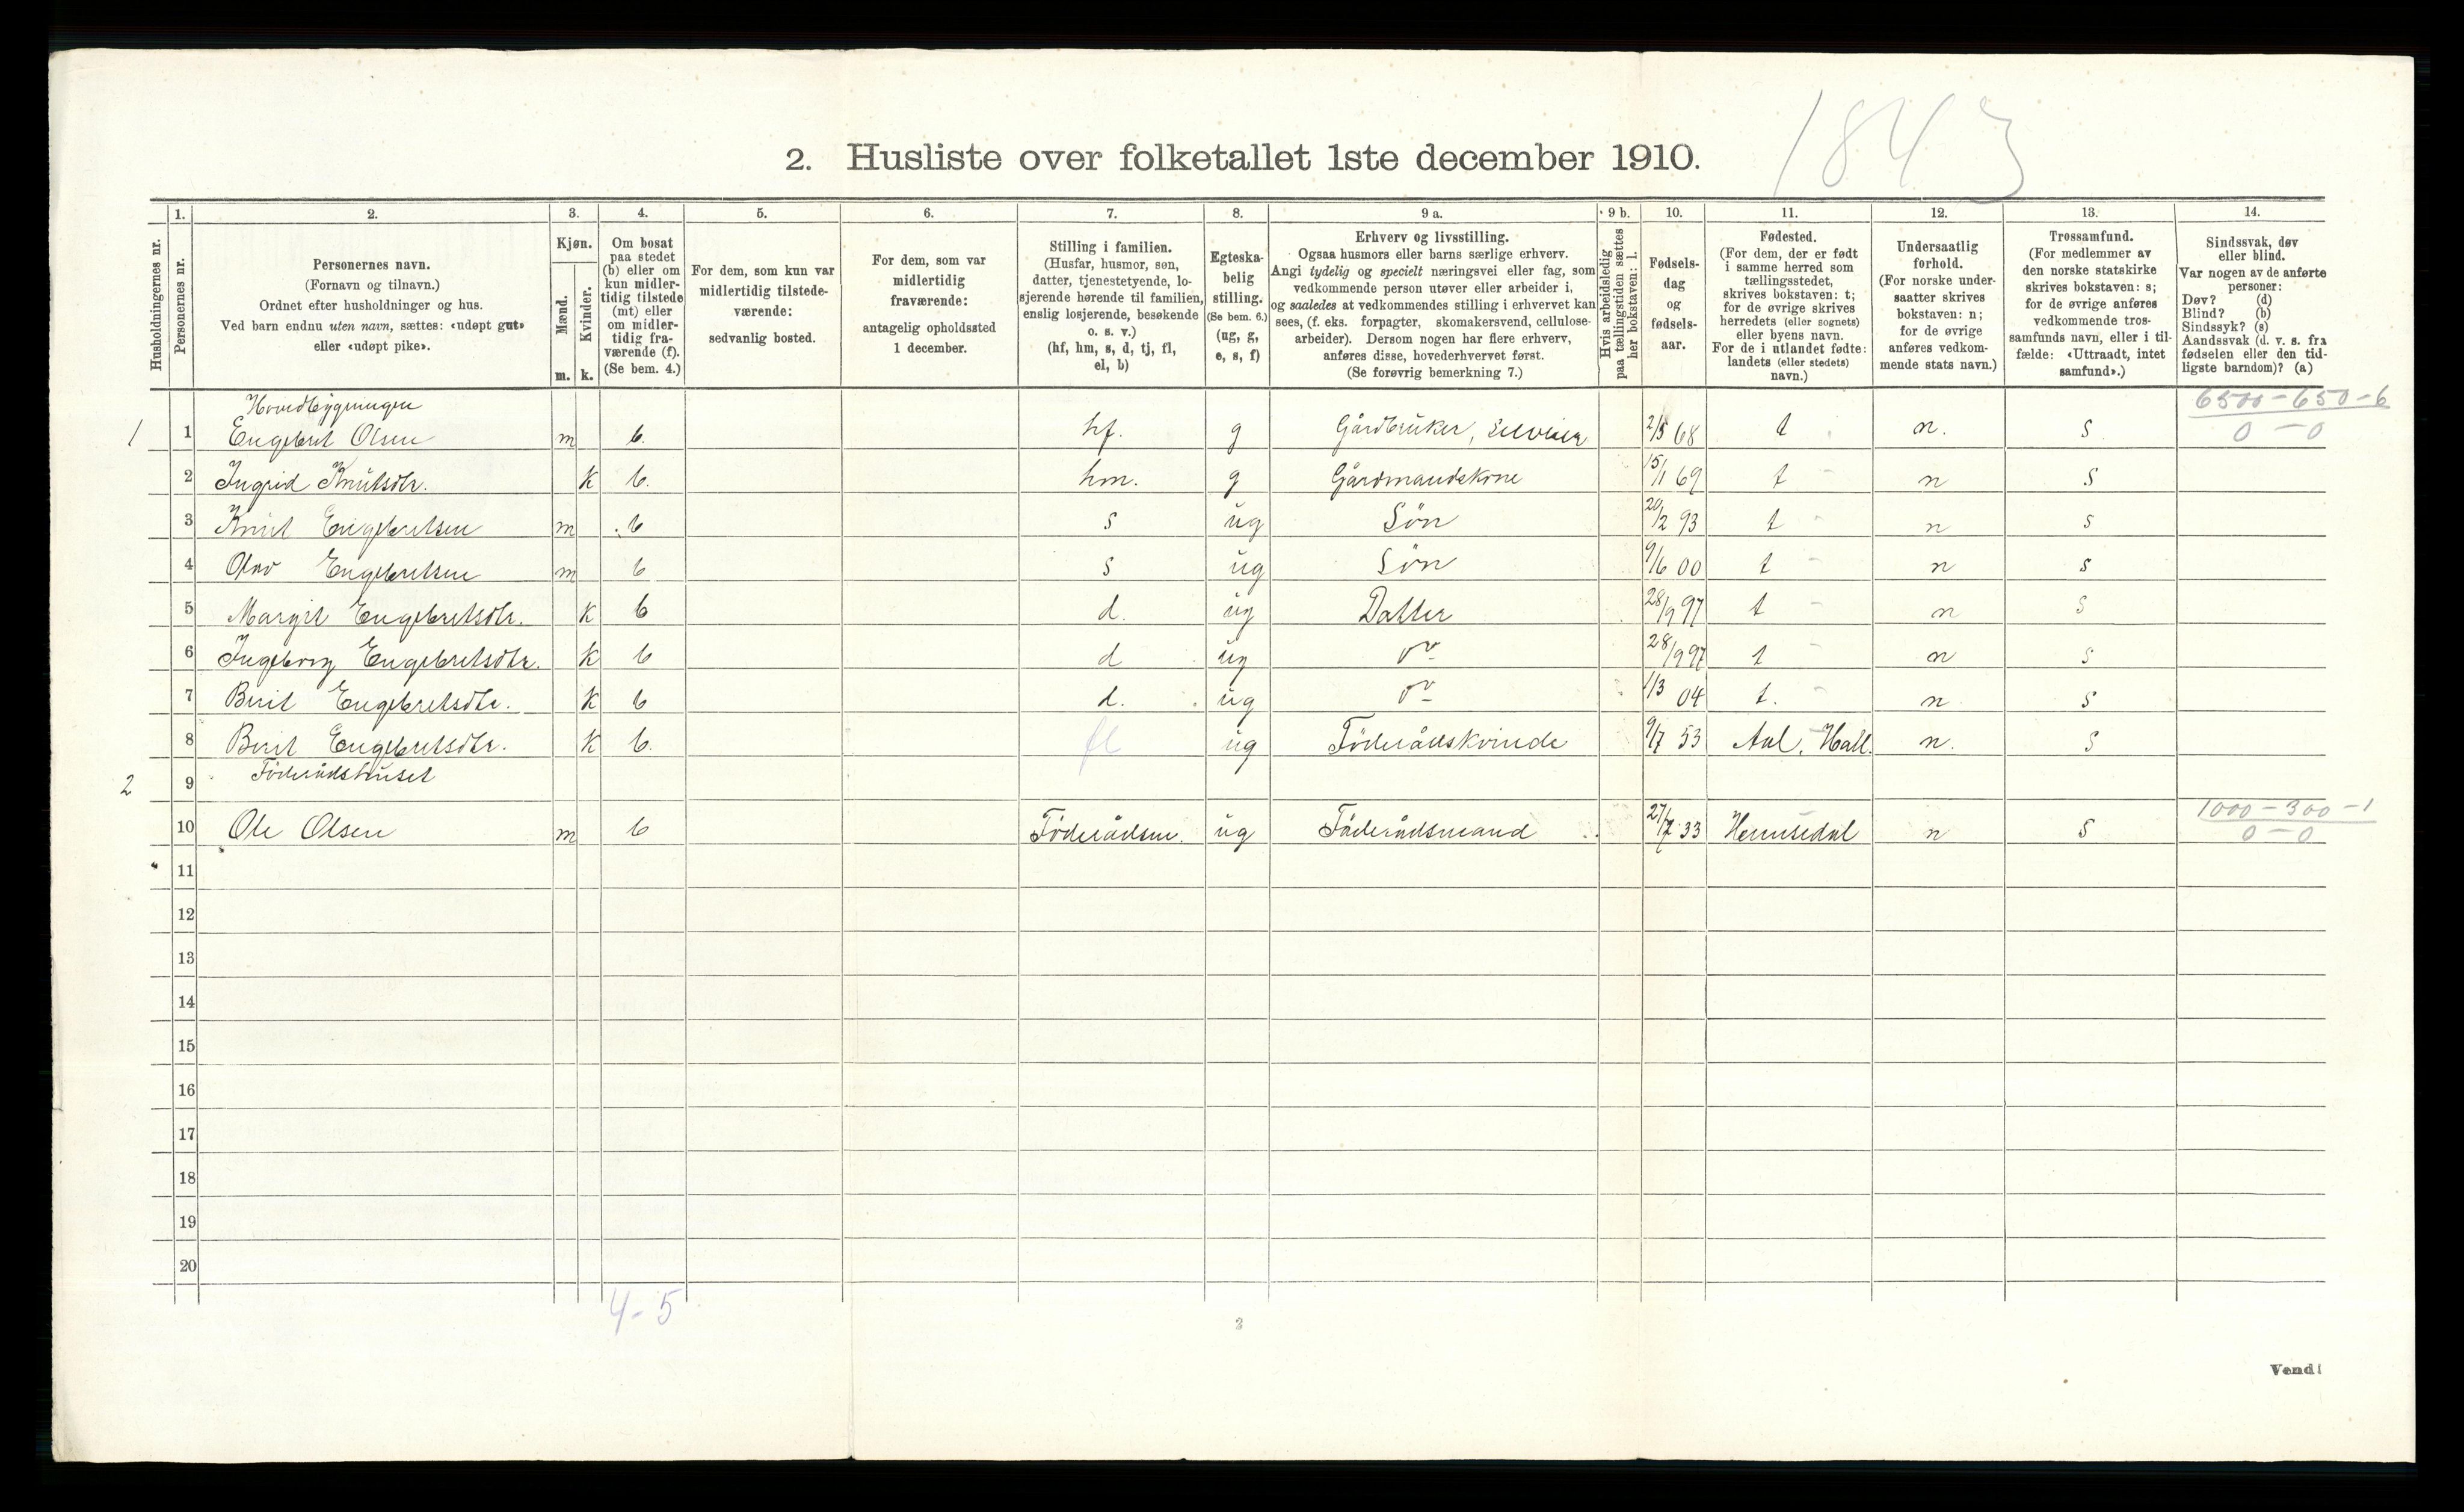 1843
2. Husliste over folketallet 1ste december 1910.
Husholdningernes nr.
1. 2. 3. 4. 5. 6. 7. 8. 9 a. 9 b. 10. 11. 12. 13. 14.
Personernes nr.
Personernes navn.
(Fornavn og tilnavn.)
Ordnet efter husholdninger og hus.
Ved barn endnu uten navn, sættes: «udøpt gut»
eller «udøpt pike».
Kjøn.
Mænd.
Kvinder.
m. k.
Om bosat
paa stedet
(b) eller om
kun midler-
tidig tilstede
(mt) eller
om midler-
tidig fra-
værende (f).
(Se bem. 4.)
For dem, som kun var
midlertidig tilstede-
værende:
sedvanlig bosted.
For dem, som var
midlertidig
fraværende:
antagelig opholdssted
1 december.
Stilling i familien.
(Husfar, husmor, søn,
datter, tjenestetyende, lo-
sjerende hørende til familien,
enslig losjerende, besøkende
o. s. v.)
(hf, hm, s, d, tj, fl,
el, b)
Egteska-
belig
stilling.
(Se bem. 6.)
(ug, g,
e, s, f)
Erhverv og livsstilling.
Ogsaa husmors eller barns særlige erhverv.
Angi tydelig og specielt næringsvei eller fag, som
vedkommende person utøver eller arbeider i,
og saaledes at vedkommendes stilling i erhvervet kan
sees, (f. eks. forpagter, skomakersvend, cellulose-
arbeider). Dersom nogen har flere erhverv,
anføres disse, hovederhvervet først.
(Se forøvrig bemerkning 7.)
Hvis arbeidsledig
paa tællingstiden sættes
her bokstaven: l.
Fødsels-
dag
og
fødsels-
aar.
Fødested.
(For dem, der er født
i samme herred som
tællingsstedet,
skrives bokstaven: t;
for de øvrige skrives
herredets (eller sognets)
eller byens navn.
For de i utlandet fødte:
landets (eller stedets)
navn.)
Undersaatlig
forhold.
(For norske under-
saatter skrives
bokstaven: n;
for de øvrige
anføres vedkom-
mende stats navn.)
Trossamfund.
(For medlemmer av
den norske statskirke
skrives bokstaven: s;
for de øvrige anføres
vedkommende tros-
samfunds navn, eller i til-
fælde: «Uttraadt, intet
samfund».)
Sindssvak, døv
eller blind.
Var nogen av de anførte
personer:
Døv? (d)
Blind? (b)
Sindssyk? (s)
Aandssvak (d. v. s. fra
fødselen eller den tid-
ligste barndom)? (a)
Hovedbygningen 6500-650-6
1 1 Engebret Olsen m b. hf. g Gårdbruker, Selveier 2/5 68 t n. s 0-0
2 Ingrid Knutsdtr. k b. hm. g Gårdmandskone 15/1 69 t n s
3 Knut Engebretsen m b s ug Sön 20/2 93 t n s
4 Olav Engebretsen m b s ug Sön 9/6 00 t n s
5 Margit Engebretsdtr. k b d. ug Datter 28/9 97 t n s
6 Ingeborg Engebretsdtr. k b d ug do 28/9 97 t n s
7 Birit Engebretsdtr. k b d. ug do 1/3 04 t. n. s
8 Birit Engebretsdtr. k b. fl ug Föderådskvinde 9/7 53 Aal, Hall. n. s
2 9 Föderådshuset
1000-300-1
10 Ole Olsen m b Föderådsm. ug Föderådsmand 27/7 33 Hemsedal n s 0-0
11
12
13
14
15
16
17
18
19
20
4-5
2
Vend!